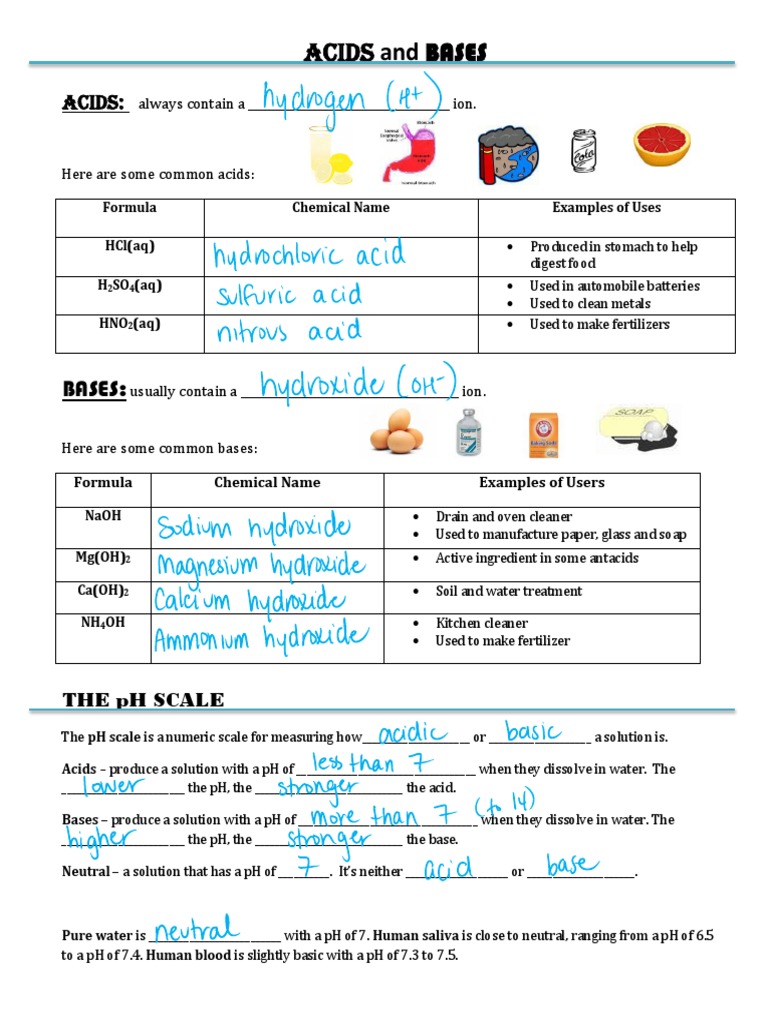 ACIDS and BASES
ACIDS: always contain a hydrogen (H+) ion.
Here are some common acids:
Cola
Formula Chemical Name Examples of Uses
HCl(aq) hydrochloric acid • Produced in stomach to help
digest food
H₂SO₄(aq) sulfuric acid • Used in automobile batteries
• Used to clean metals
HNO₂(aq) nitrous acid • Used to make fertilizers
BASES: usually contain a hydroxide (OH⁻) ion.
SOAP
Here are some common bases:
Formula Chemical Name Examples of Users
NaOH Sodium hydroxide • Drain and oven cleaner
• Used to manufacture paper, glass and soap
Mg(OH)₂ Magnesium hydroxide • Active ingredient in some antacids
Ca(OH)₂ Calcium hydroxide • Soil and water treatment
NH₄OH Ammonium hydroxide • Kitchen cleaner
• Used to make fertilizer
THE pH SCALE
The pH scale is a numeric scale for measuring how acidic or basic a solution is.
Acids – produce a solution with a pH of less than 7 when they dissolve in water. The
lower the pH, the stronger the acid.
Bases – produce a solution with a pH of more than 7 (to 14) when they dissolve in water. The
higher the pH, the stronger the base.
Neutral – a solution that has a pH of 7. It's neither acid or base.
Pure water is neutral with a pH of 7. Human saliva is close to neutral, ranging from a pH of 6.5
to a pH of 7.4. Human blood is slightly basic with a pH of 7.3 to 7.5.